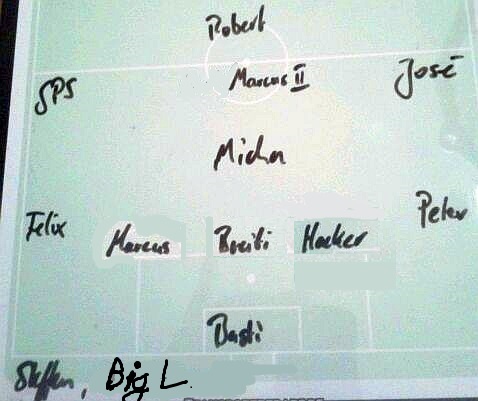 Robert
SPS Marcus II José
Micha
Felix Marcus Breiti Hacker Peter
Basti
Steffen, Big L.